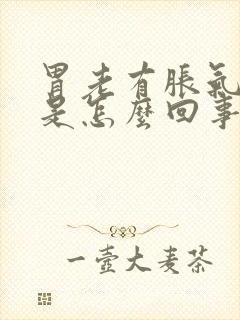 胃老有脹氣
是怎麼回事
一壺大麥茶